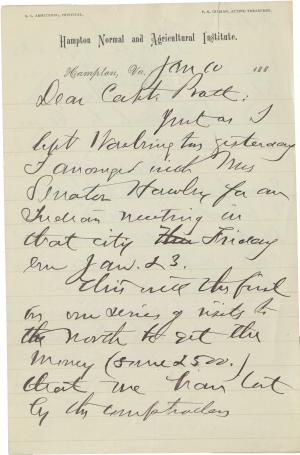 S. C. ARMSTRONG, PRINCIPAL.
F. N. GILMAN, ACTING TREASURER.
Hampton Normal and Agricultural Institute.
Hampton, Va. Jan 10 188
Dear Capt. Pratt:
Just as I
left Washington yesterday
I arranged with Mrs
Senator Hawley for an
Indian meeting in
that city Friday
eve Jan. 23.
This will the first
by our series of visits to
the North to get the
money (some 2500.)
that we have lost
by the comptrollers